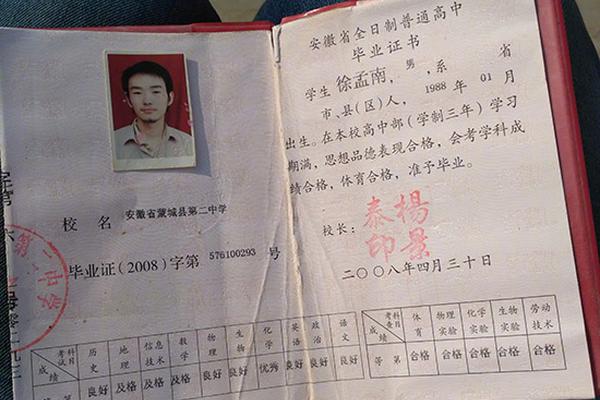 校 名 安徽省蒙城县第二中学
毕业证(2008)字第 576100293 号
考试科目 历史 地理 信息技术 数学 物理 生物 化学 英语 政治 语文
成绩 良好 及格 及格 及格 良好 良好 优秀 良好 良好 良好
安徽省全日制普通高中
毕业证书
学生 徐孟南，男，系 省
市、县(区)人，1988 年 01 月
出生。在本校高中部(学制三年)学习
期满，思想品德表现合格，会考学科成
绩合格，体育合格，准予毕业。
校长：
楊景
泰印
二〇〇八年四月三十日
考查科目 体育 物理实验 化学实验 生物实验 劳动技术
成绩 等第 合格 合格 合格 合格 合格